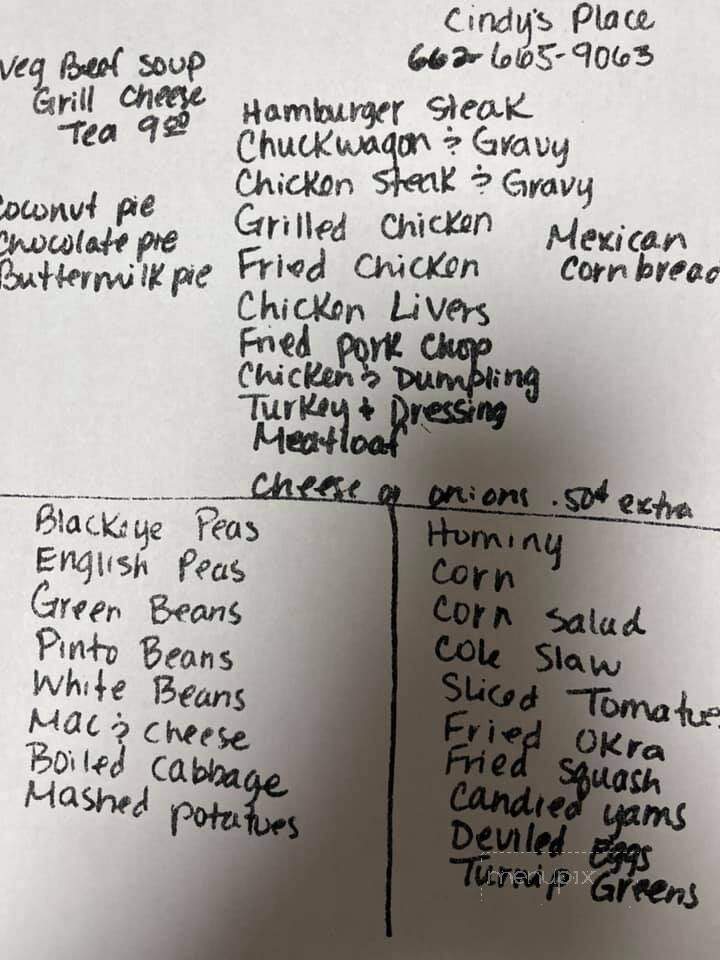 Cindy's Place
662-665-9063
Veg Beef soup
Grill Cheese
Tea 9.50
Coconut pie
Chocolate pie
Buttermilk pie
Hamburger Steak
Chuckwagon & Gravy
Chicken Steak & Gravy
Grilled Chicken
Fried Chicken
Chicken Livers
Fried Pork Chop
Chicken & Dumpling
Turkey + Dressing
Meatloaf
Mexican
Cornbread
Cheese or onions .50¢ extra
Blackeye Peas
English Peas
Green Beans
Pinto Beans
White Beans
Mac & Cheese
Boiled Cabbage
Mashed Potatoes
Hominy
Corn
Corn Salad
Cole Slaw
Sliced Tomatoes
Fried Okra
Fried Squash
Candied yams
Deviled Eggs
Turnip Greens
menupix